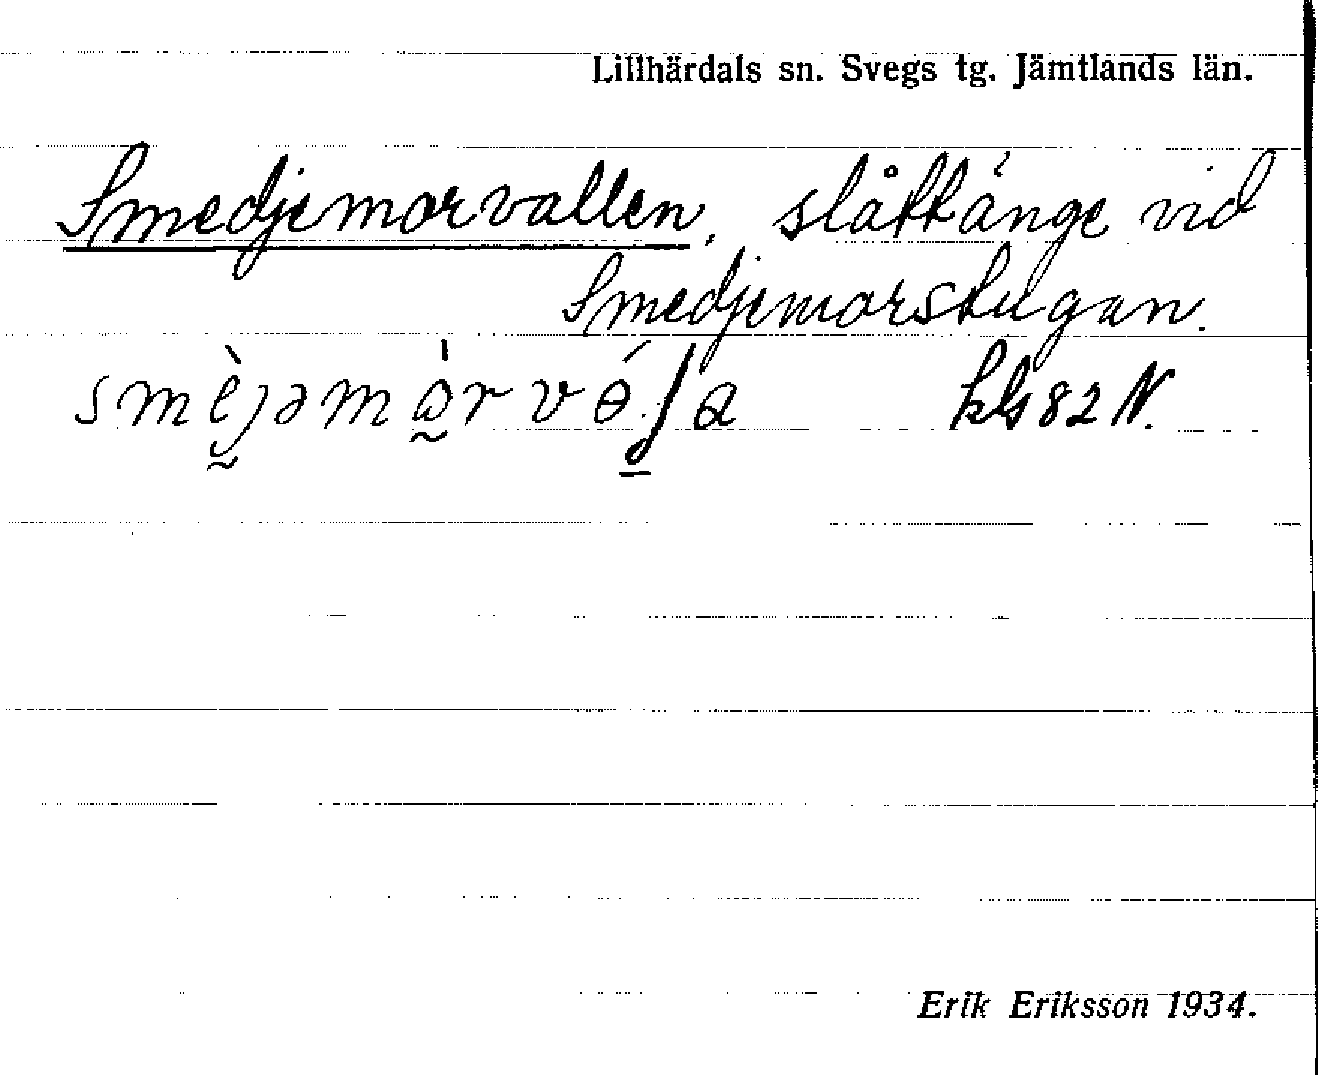 Lillhärdals sn. Svegs tg. Jämtlands län.
Smedjemorvallen, slåttänge vid
Smedjemorstugan.
kls 82 N.
Erik Eriksson 1934.